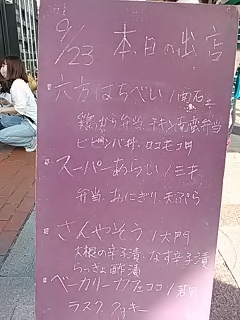 9/23 本日の出店
六方はちべい/
鶏から弁当、チキン南蛮弁当
ビビンバ丼、ロコモコ丼
スーパーあらい/三手
弁当、おにぎり、天ぷら
さんやそう/大門
大根の辛子漬・なす辛子漬
らっきょ酢漬
ベーカリーナカフェココ/若
ラスク、クッキー